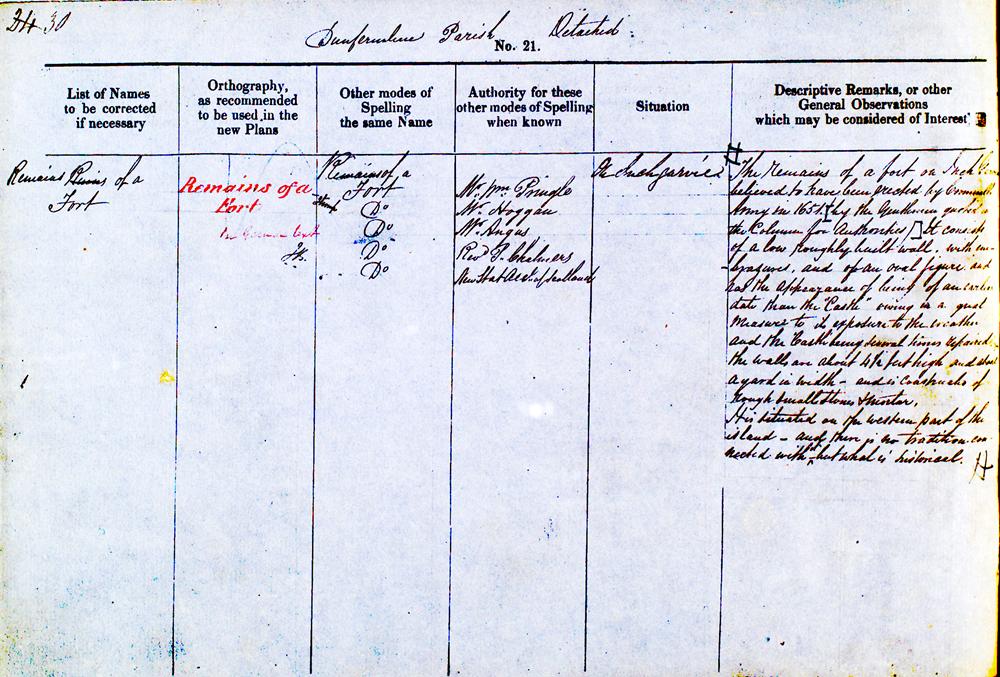 24 30
Dunfermline Parish Detached
No. 21.
List of Names
to be corrected
if necessary
Orthography,
as recommended
to be used in the
new Plans
Other modes of
Spelling
the same Name
Authority for these
other modes of Spelling
when known
Situation
Descriptive Remarks, or other
General Observations
which may be considered of Interest
Remains Ruins of a
Fort
Remains of a
Fort
In German text
Remains of a
Fort
Do
Do
Do
Do
Mr. Wm Pringle
Mr. Hoggan
Mr. Angus
Revd P. Chalmers
New Stat Acct. of Scotland
On Inchgarvie
The Remains of a fort on Inch
believed to have been erected by
Army in 1651 by the Gentlemen quoted in
the Column for Authorities It consists
of a low roughly built wall, with em-
-brazures, and of an oval figure and
has the appearance of being of an earlier
date than the "Castle" owing in a great
measure to its exposure to the weather
and the "Castle" being several times repaired
the walls are about 4½ feet high and about
a yard in width - and is constructed of
rough small stones & mortar,
It is situated on the western part of the
island - and there is no tradition con-
nected with it but what is historical.